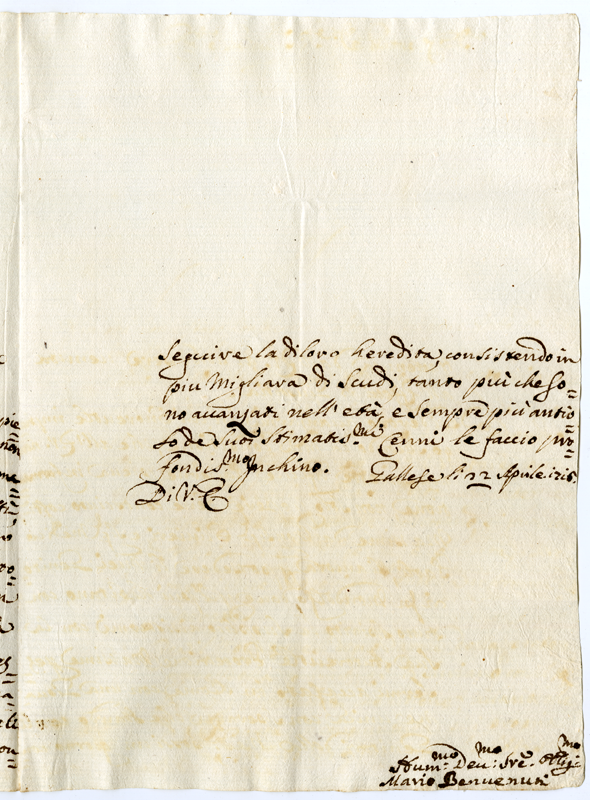 seguire la di loro heredità, consistendo in
più Migliara di Scudi, tanto più che so=
no avanzati nell' età, e sempre più antio
so de suoi Stimatis.mi Cenni le faccio pro=
fondis.mo Inchino. Gallese li 22 Aprile
Di V. E.
Hum.mo Dev.mo Sre. Oblig.mo
Mario Benvenuti